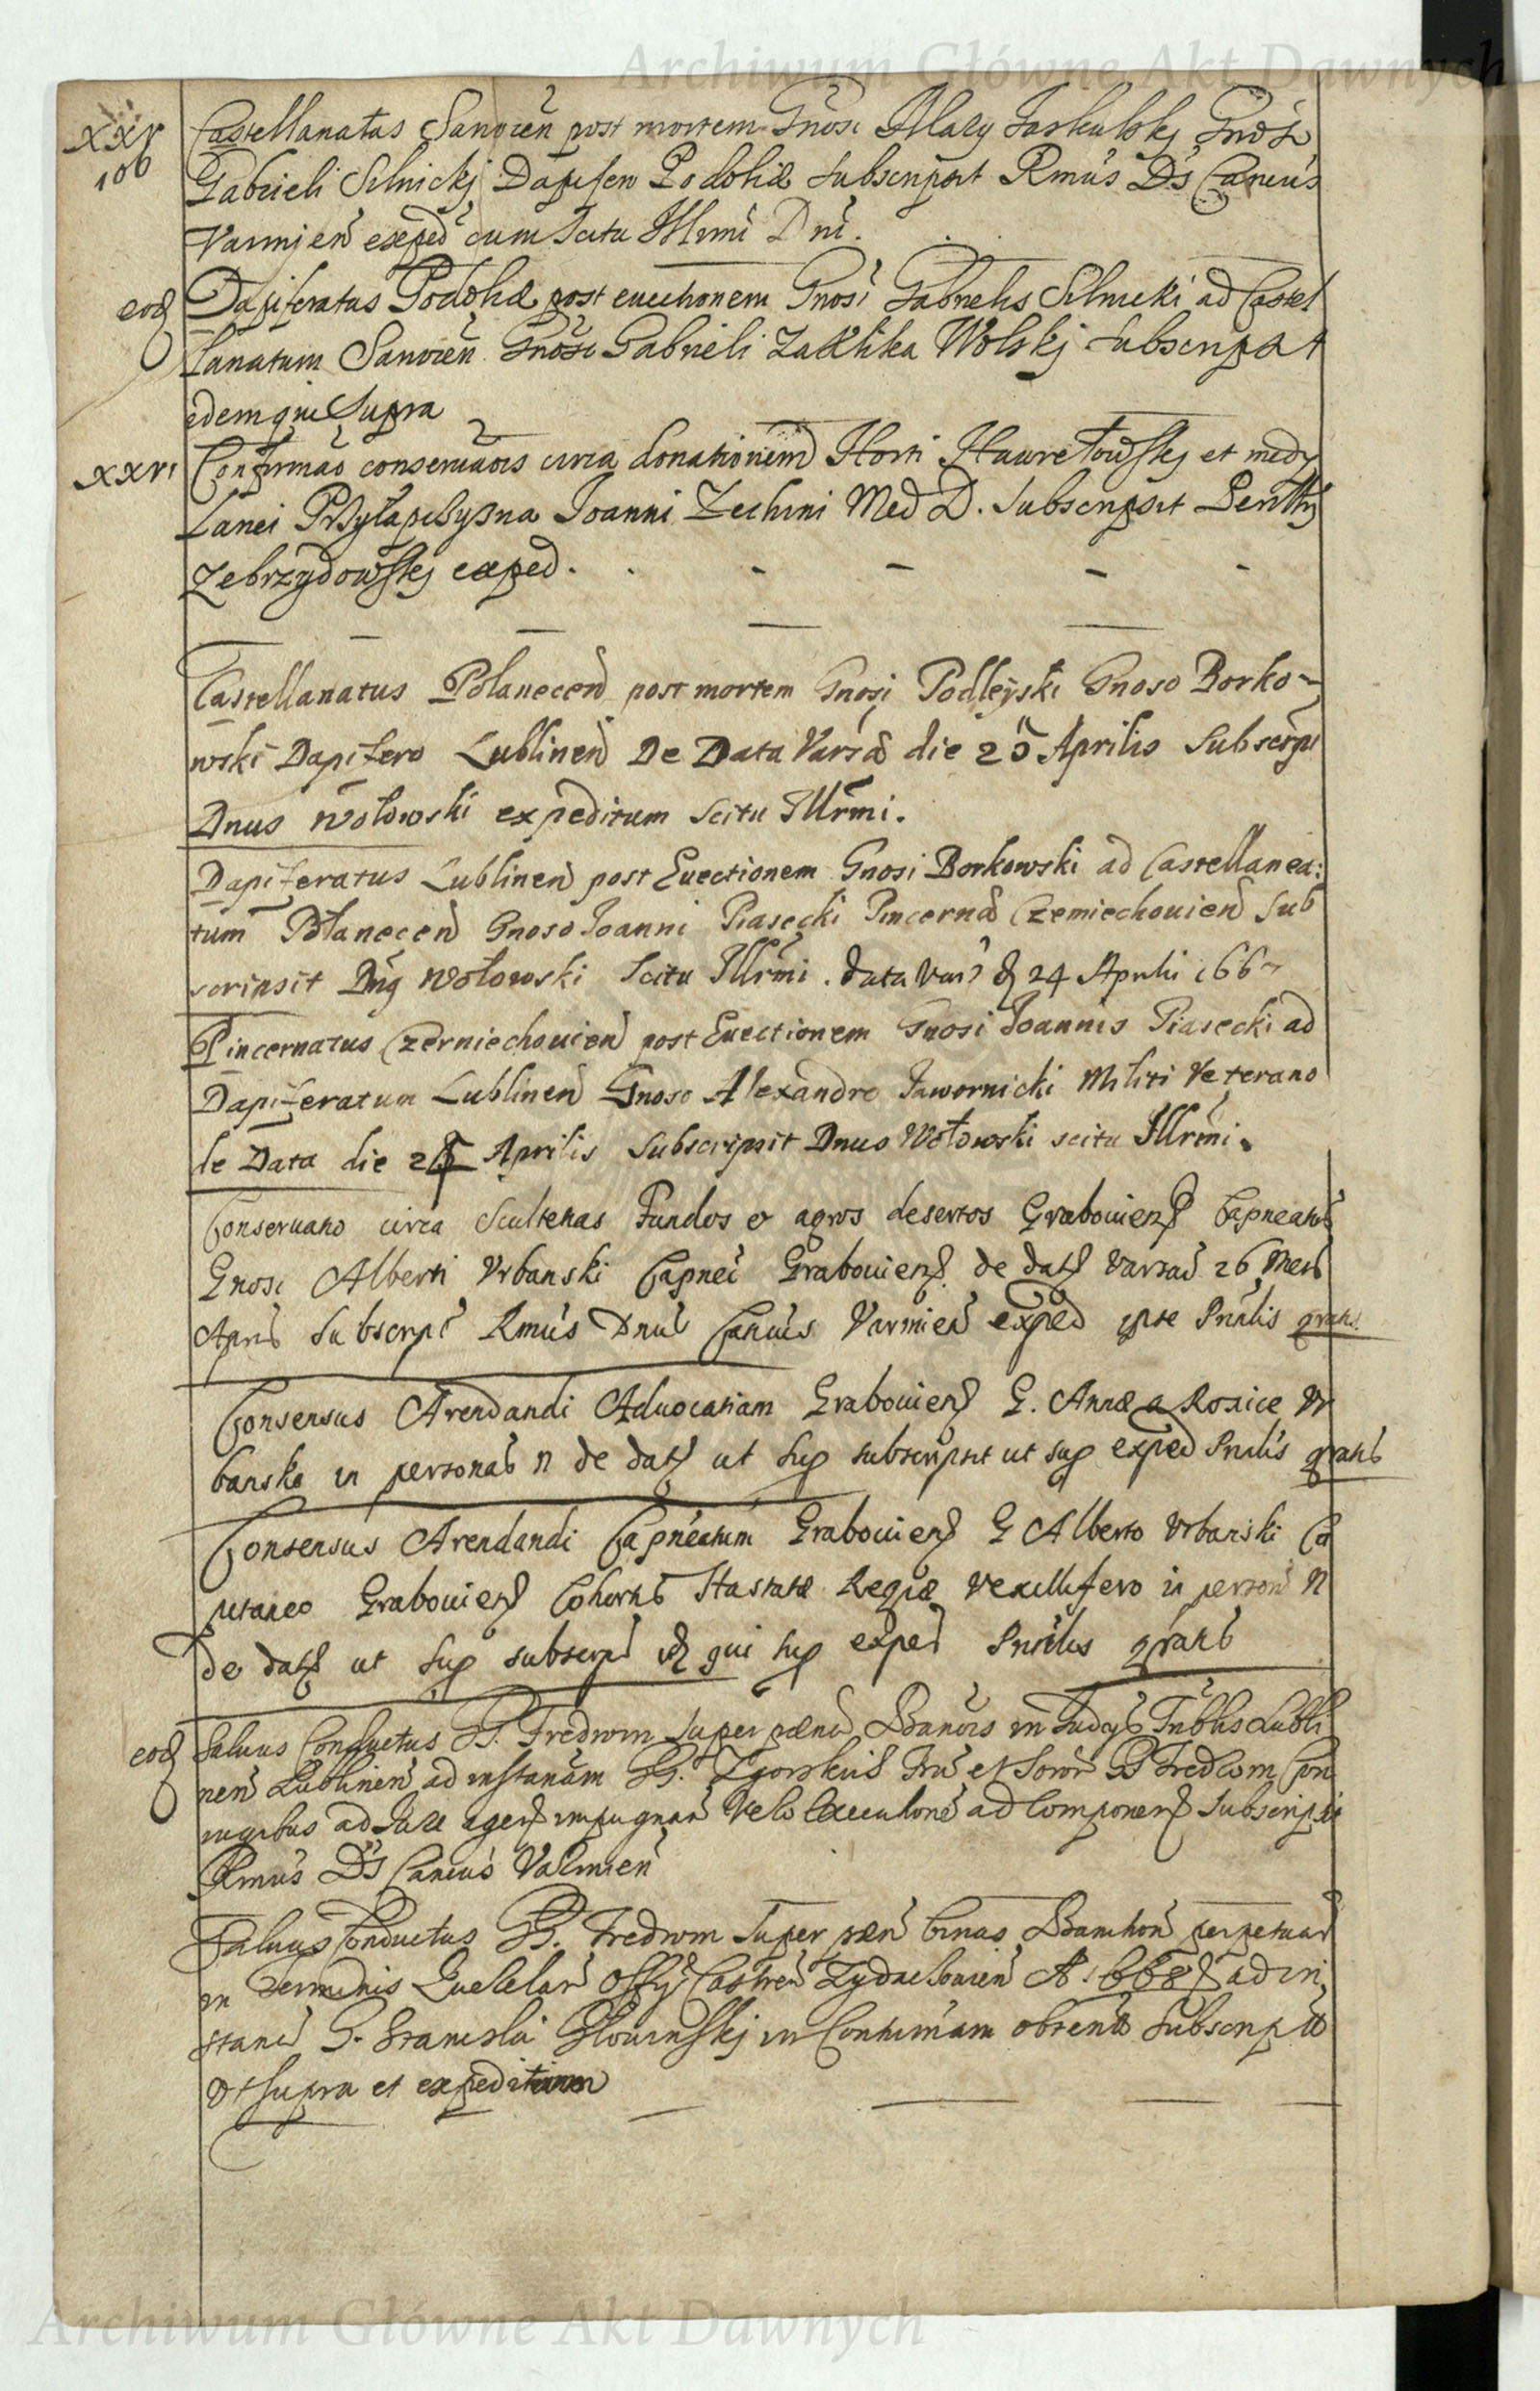 Archiwum Główne Akt Dawnych
xxv Castellanatus Sanocen post mortem Gnosi Jaskulskj Gnoso
106
Gabrieli Silnickj Dapifero Podoliæ subscripsit Rmus Ds Cancus
Varmien exped cum scitu Illrmi Dni.
eod Dapiferatus Podoliæ post euectionem Gnosi Gabrielis Silnicki ad Castel
lanatum Sanocen Gnoso Gabrieli Zaklika Wolskj subscripsit
idem qui supra
xxvi Confirmao conseruaois circa donationem Horti et medy
Lanei Joanni Zechini Med D. subscripsit
Zebrzydowskj exped.
Castellanatus Polanecen post mortem Gnosi Podleyski Gnoso Borko-
wski Dapifero Lublinen De Data Varsa die 25 Aprilis Subscrps
Dnus Wołowski expeditum scitu Illrmi.
Dapiferatus Lublinen post Euectionem Gnosi Borkowski ad Castellanea:
tum Polanecen Gnoso Joanni Piasecki Pincerna Czerniechouien Sub
scripsit Dnus Wołowski scitu Illrmi. data Vars d 24 Aprilis 166
Pincernatus Czerniechouien post Euectionem Gnosi Joannis Piasecki ad
Dapiferatum Lublinen Gnoso Alexandro Jawornicki Militi Veterano
de Data die Aprilis Subscripsit Dnus Wołowski scitu Illrmi.
Conseruatio circa Scultetias Fundos et agros desertos Grabouien Capneatus
Gnosi Alberti Vrbanski Capnei Grabouien de dat Varsa 26 Mens
Apris Subscrps Rmus Dnus Cancus Varmien exped gratis
Consensus Arendandi Aduocatiam Grabouien G. Annæ a Rosice Vr
banska in personas n de dat ut sup subscripsit ut sup exped gratis
Consensus Arendandi Capneatum Grabouien G Alberto Vrbanski Ca
pitaneo Grabouien Cohortis Hastatæ Regiæ Vexillifero in person n
De dat ut sup subscrps id qui sup exped gratis
eod Saluus Conductus G. Fredrom super pæna Banois in Judys Triblis Lubli
nen Lublinen ad instanam G. et Soror Fredrom Con
iugibus ad Jure agen impugnan ad componen subscripsit
Rmus Ds Cancus Varmien
Saluus Conductus G. Fredrom super pæn binas Bannition perpetuas
in Terminis Querelar Offy Castren Zydaczouien A 1668 ad in
stan G. Stanislai in Contumam obtent subscript
Vt supra et expeditum
Archiwum Główne Akt Dawnych